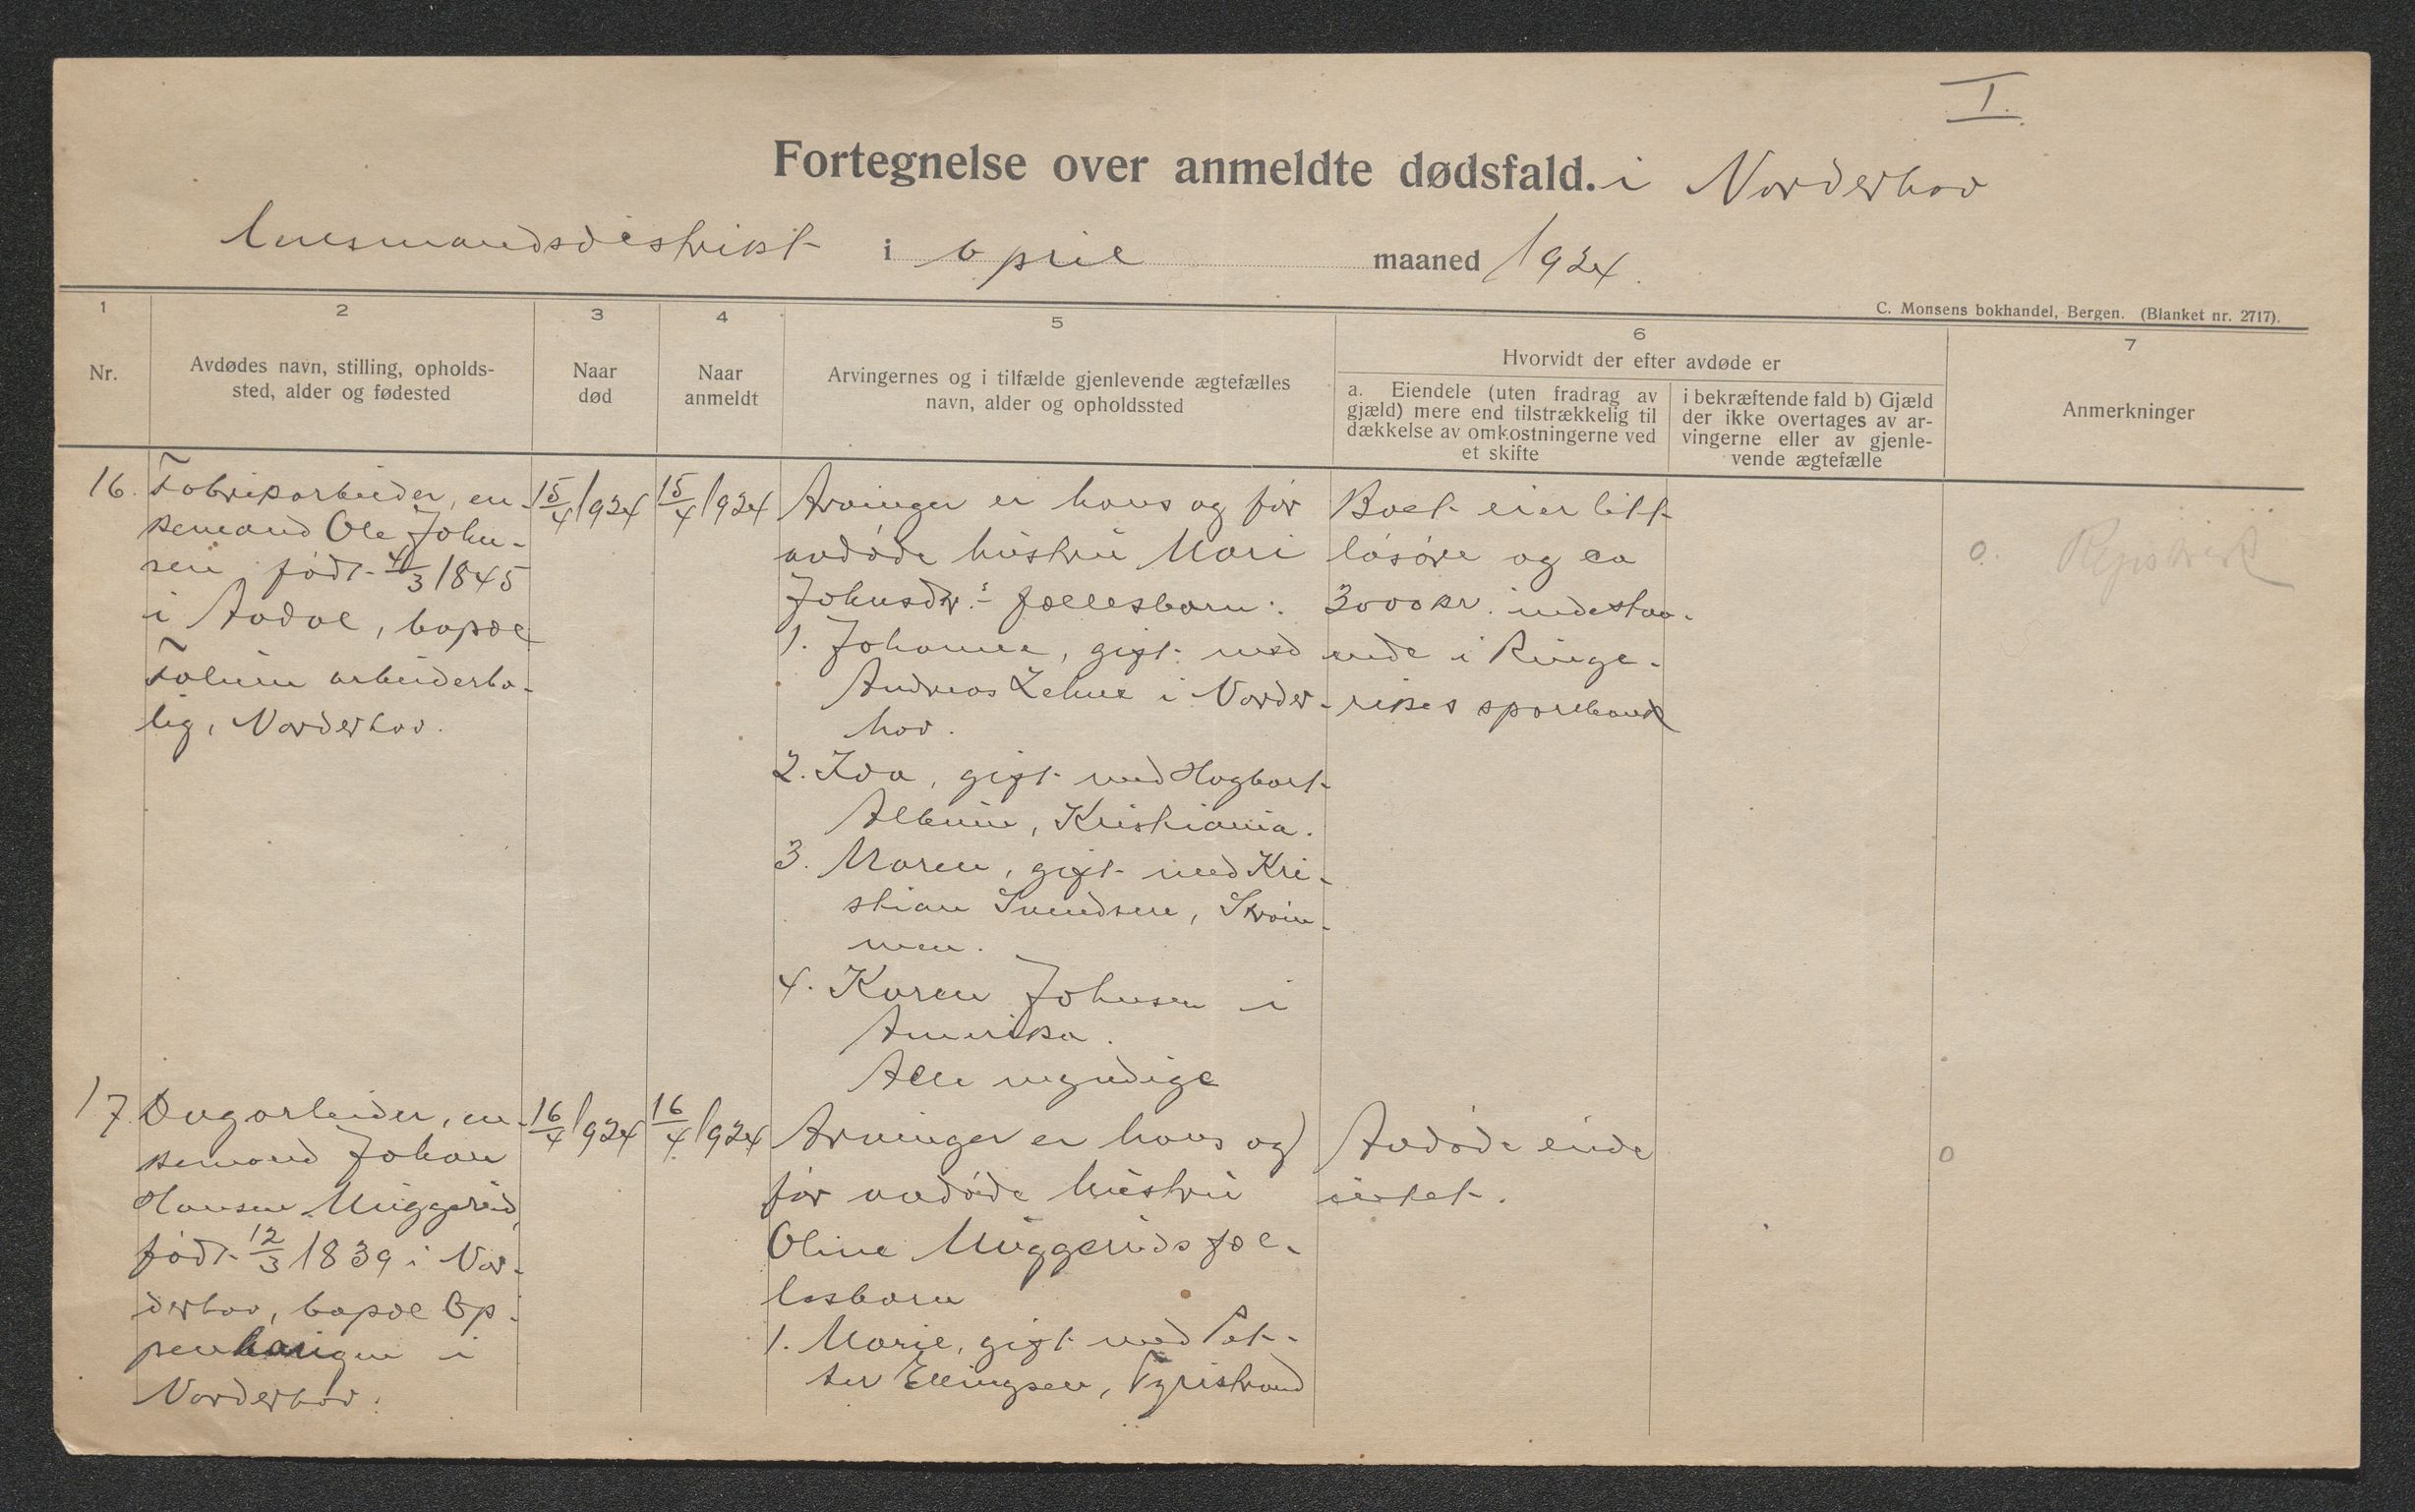 I.
Fortegnelse over anmeldte dødsfald. i Norderhov
lensmandsdistrikt i april maaned 1924.
C. Monsens bokhandel, Bergen. (Blanket nr. 2717).
1
2
3
4
5
6
7
Nr.
Avdødes navn, stilling, opholds-
sted, alder og fødested
Naar
død
Naar
anmeldt
Arvingernes og i tilfælde gjenlevende ægtefælles
navn, alder og opholdssted
Hvorvidt der efter avdøde er
a. Eiendele (uten fradrag av
gjæld) mere end tilstrækkelig til
dækkelse av omkostningerne ved
et skifte
i bekræftende fald b) Gjæld
der ikke overtages av ar-
vingerne eller av gjenle-
vende ægtefælle
Anmerkninger
16.
Fabrikarbeider, en-
kemand Ole John-
sen, født 4/3 1845
i Aadal, bopæl
Follum arbeiderbo-
lig, Norderhov.
15/4 1924
15/4 1924
Arvinger er hans og før
avdøde hustru Mari
Johnsdr.s fællesbarn:
1. Johanne, gift med
Andreas Lehne i Norder-
hov.
2. Ida, gift med Hagbart
Album, Kristiania.
3. Maren, gift med Kri-
stian Svendsen, Strøm-
men.
4. Karen Johnsen i
Amerika.
Alle myndige
Boet eier litt
løsøre og ca
3000 kr. indestaa-
ende i Ringe-
rikes sparebank
o.
Registrert
17.
Dagarbeider, en-
kemand Johan
Hansen Muggerud,
født 12/3 1839 i Nor-
derhov, bopæl Op-
i
Norderhov.
16/4 1924
16/4 1924
Arvinger er hans og
før avdøde hustru
Oline Muggeruds fæl-
lesbarn
1. Marie, gift med Pet-
ter Ellingsen, Tyristrand
Avdøde eide
intet.
o